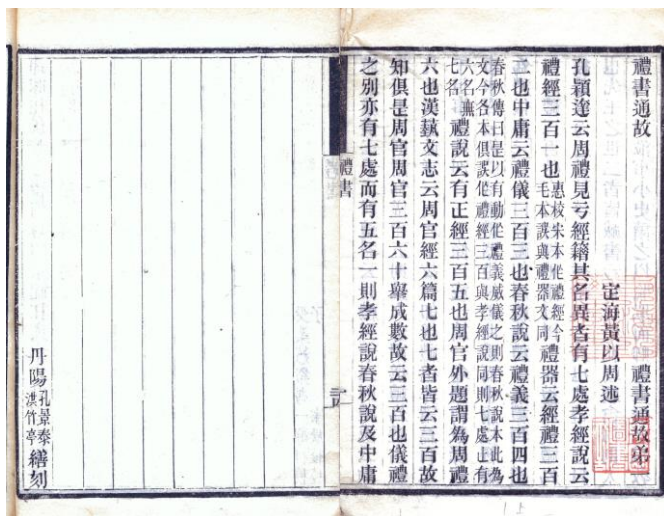 禮書通故 禮書通故弟
定海黃以周述
孔穎達云周禮見亏經籍其名異者有七處孝經說云
禮經三百一也惠校宋本作禮經今毛本誤與禮器文同禮器云經禮三百
二也中庸云禮儀三百三也春秋說云禮義三百四也
春秋傳曰是以有動作禮義威儀之則春秋說本此為文今各本俱誤作禮經三百與孝經說同則七處止有六名無七名禮說云有正經三百五也周官外題謂為周禮
六也漢蓺文志云周官經六篇七也七者皆云三百故
知俱是周官周官三百六十舉成數故云三百也儀禮
之別亦有七處而有五名一則孝經說春秋說及中庸
禮書
丹陽孔景泰洪竹亭繕刻